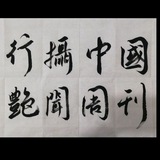 行攝中國
艷聞周刊